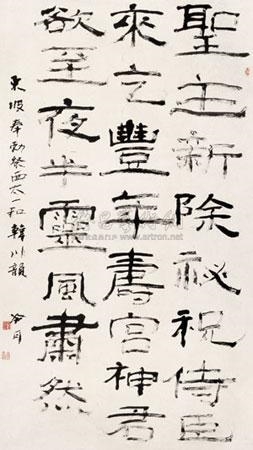 聖主新除祕祝侍臣
來乞豐年壽宮神君
欲至夜半靈風肅然
東坡奉勅祭西太一和韓川韻
www.artron.net